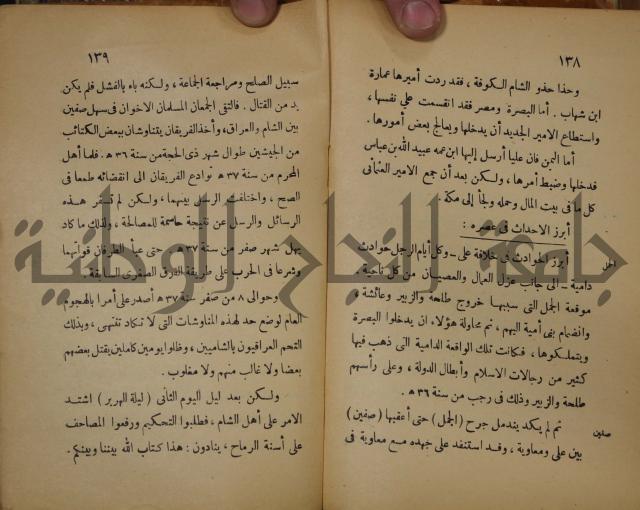 ١٣٨
وحذا حذو الشام الكوفة ، فقد ردت أميرها عمارة
ابن شهاب . أما البصرة ومصر فقد انقسمت على نفسها ،
واستطاع الامير الجديد أن يدخلها ويعالج بعض أمورها .
أما اليمن فان عليا أرسل إليها ابن عمه عبيد الله بن عباس
فدخلها وضبط أمرها ، ولكن بعد أن جمع الامير العثمانى
كل ما فى بيت المال وحمله ولجأ إلى مكة .
أبرز الاحداث فى عصره :
الجمل
أبرز الحوادث فى خلافة على – وكل أيام الرجل حوادث
دامية – الى جانب عزل العمال والعصيان من كل ناحية ،
موقعة الجمل التى سببها خروج طلحة والزبير وعائشة ،
وانضمام بنى أمية اليهم ، ثم محاولة هؤلاء ان يدخلوا البصرة
ويتملكوها ، فكانت تلك الواقعة الدامية التى ذهب فيها
كثير من رجالات الاسلام وأبطال الدولة ، وعلى رأسهم
طلحة والزبير وذلك فى رجب من سنة ٣٦ ه .
صفين
ثم لم يكد يندمل جرح (الجمل) حتى أعقبها (صفين)
بين على ومعاوية ، وقد استنفد على جهده مع معاوية فى
١٣٩
سبيل الصلح ومراجعة الجماعة ، ولكنه باء بالفشل فلم يكن
بد من القتال . فالتقى الجمعان المسلمان الاخوان فى سهل صفين
بين الشام والعراق ، وأخذ الفريقان يتناوشان ببعض الكتائب
من الجيشين طوال شهر ذى الحجة من سنة ٣٦ ه . فلما أهل
المحرم من سنة ٣٧ ه توادع الفريقان الى انقضائه طمعا فى
الصلح ، واختلفت الرسل بينهما ، ولكن لم تسفر هذه
الرسائل والرسل عن نتيجة حاسمة للمصالحة ، ولذلك ما كاد
يهل شهر صفر من سنة ٣٧ ه حتى عبأ الطرفان قواتهما
وشرعا فى الحرب على طريقة الفرق الصغرى السابقة .
وحوالى ٨ من صفر سنة ٣٧ ه أصدر على أمرا بالهجوم
العام لوضع حد لهذه المناوشات التى لا تكاد تنتهى ، وبذلك
التحم العراقيون بالشاميين ، وظلوا يومين كاملين يقتل بعضهم
بعضا ولا غالب منهم ولا مغلوب .
ولكن بعد ليل اليوم الثانى ( ليلة الهرير ) اشتد
الامر على أهل الشام ، فطلبوا التحكيم ورفعوا المصاحف
على أسنة الرماح ، ينادون : هذا كتاب الله بيننا وبينكم .
جامعة النجاح الوطنية